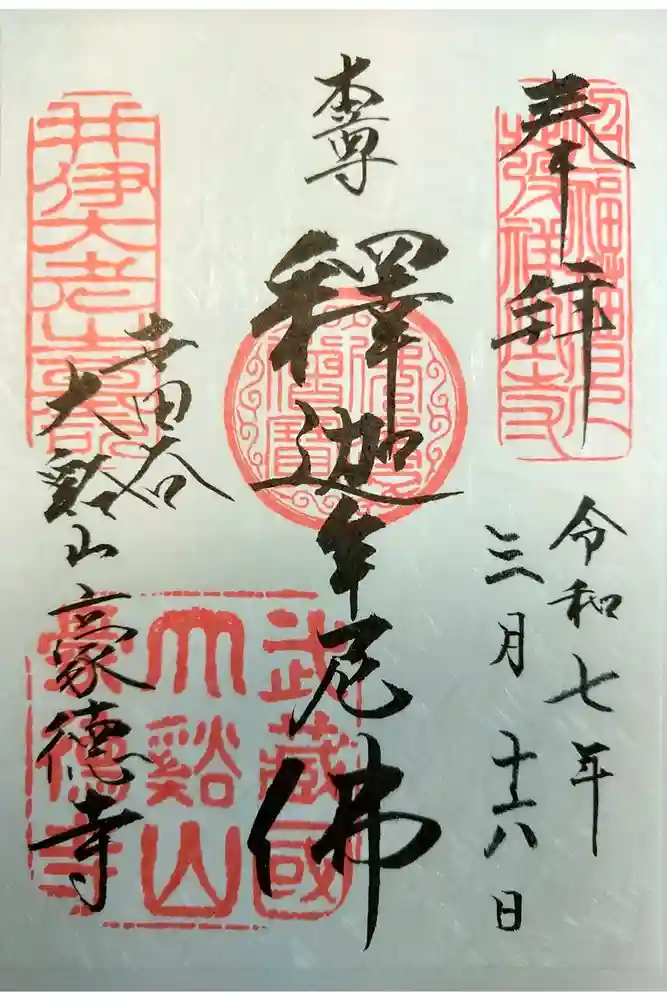 奉拝
令和七年
三月十六日
本尊
釋迦牟尼佛
世田谷
大谿山豪德寺
招福猫児
発祥豪徳寺
佛法僧寶
井伊大老山
武藏國
大谿山
豪德寺